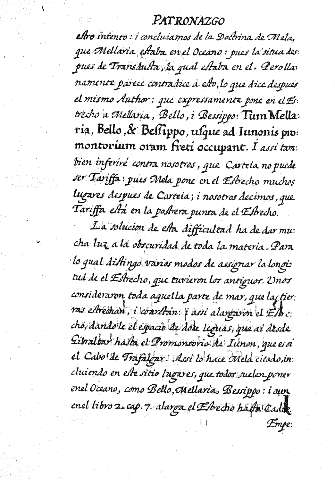 PATRONAZGO
estro intento: i concluiamos de la Doctrina de Mela,
que Mellaria, estaba en el Oceano: pues la situa des-
pues de Transducta, la qual estaba en el. Pero lla-
namente parece contradice à esto, lo que dice despues
el mismo Author: que expressamente pone en el Es-
trecho à Mellaria, Bello, i Bessippo: Tum Mella-
ria, Bello, & Bessippo, usque ad Iunonis pro-
montorium oram freti occupant. I assi tam-
bien inferirè contra nosotros, que Carteia no puede
ser Tariffa: pues Mela pone en el Estrecho muchos
lugares despues de Carteia; i nosotros decimos, que
Tariffa està en la postrera punta de el Estrecho.
La solucion de esta difficultad ha de dar mu-
cha luz à la obscuridad de toda la materia. Para
lo qual distingo varios modos de assignar la longi-
tud de el Estrecho, que tuvieron los antiguos. Unos
consideraron toda aquella parte de mar, que las tier-
ras estrechan, i coartan: i assi alargaron el Estre-
cho, dandole el espacio de doce leguas, que ai desde
Gibraltar hasta el Promontorio de Iunon, que es oi
el Cabo de Trafalgar. Assi lo hace Mela citado, in-
cluiendo en este sitio lugares, que todos suelen poner
en el Oceano, como Bello, Mellaria, Bessippo: i aun
en el libro 2. cap. 7. alarga el Estrecho hasta Cadiz.
Empe-